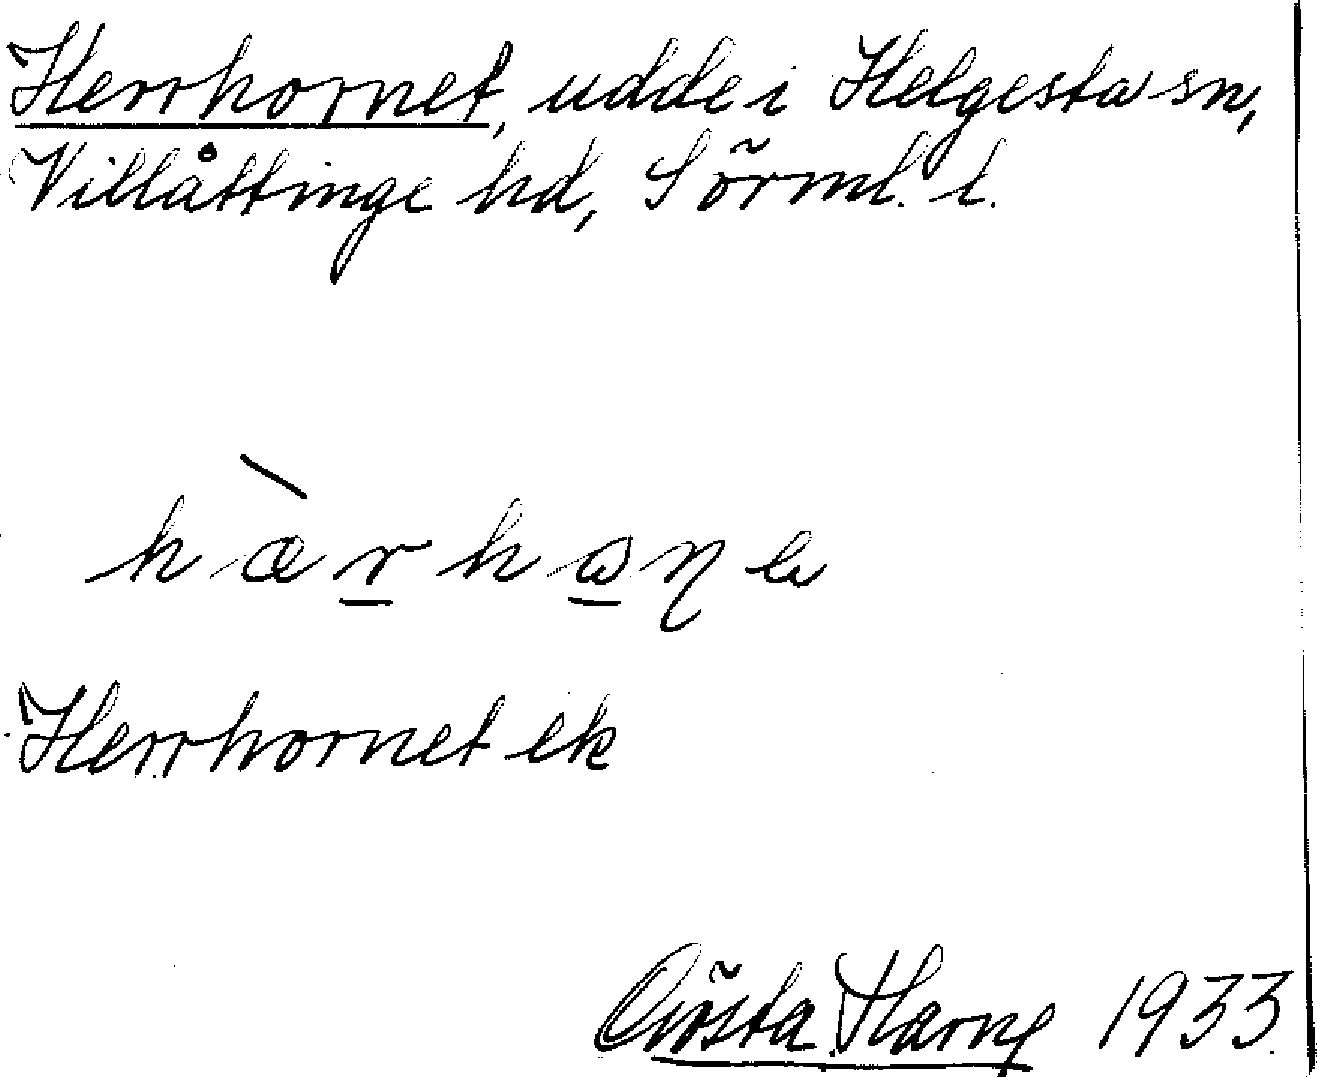 Herrhornet, udde i Helgesta sn,
Villåttinge hd, Sörml. l.
hærhɷɳe
Herrhornet ek
Gösta Harng 1933